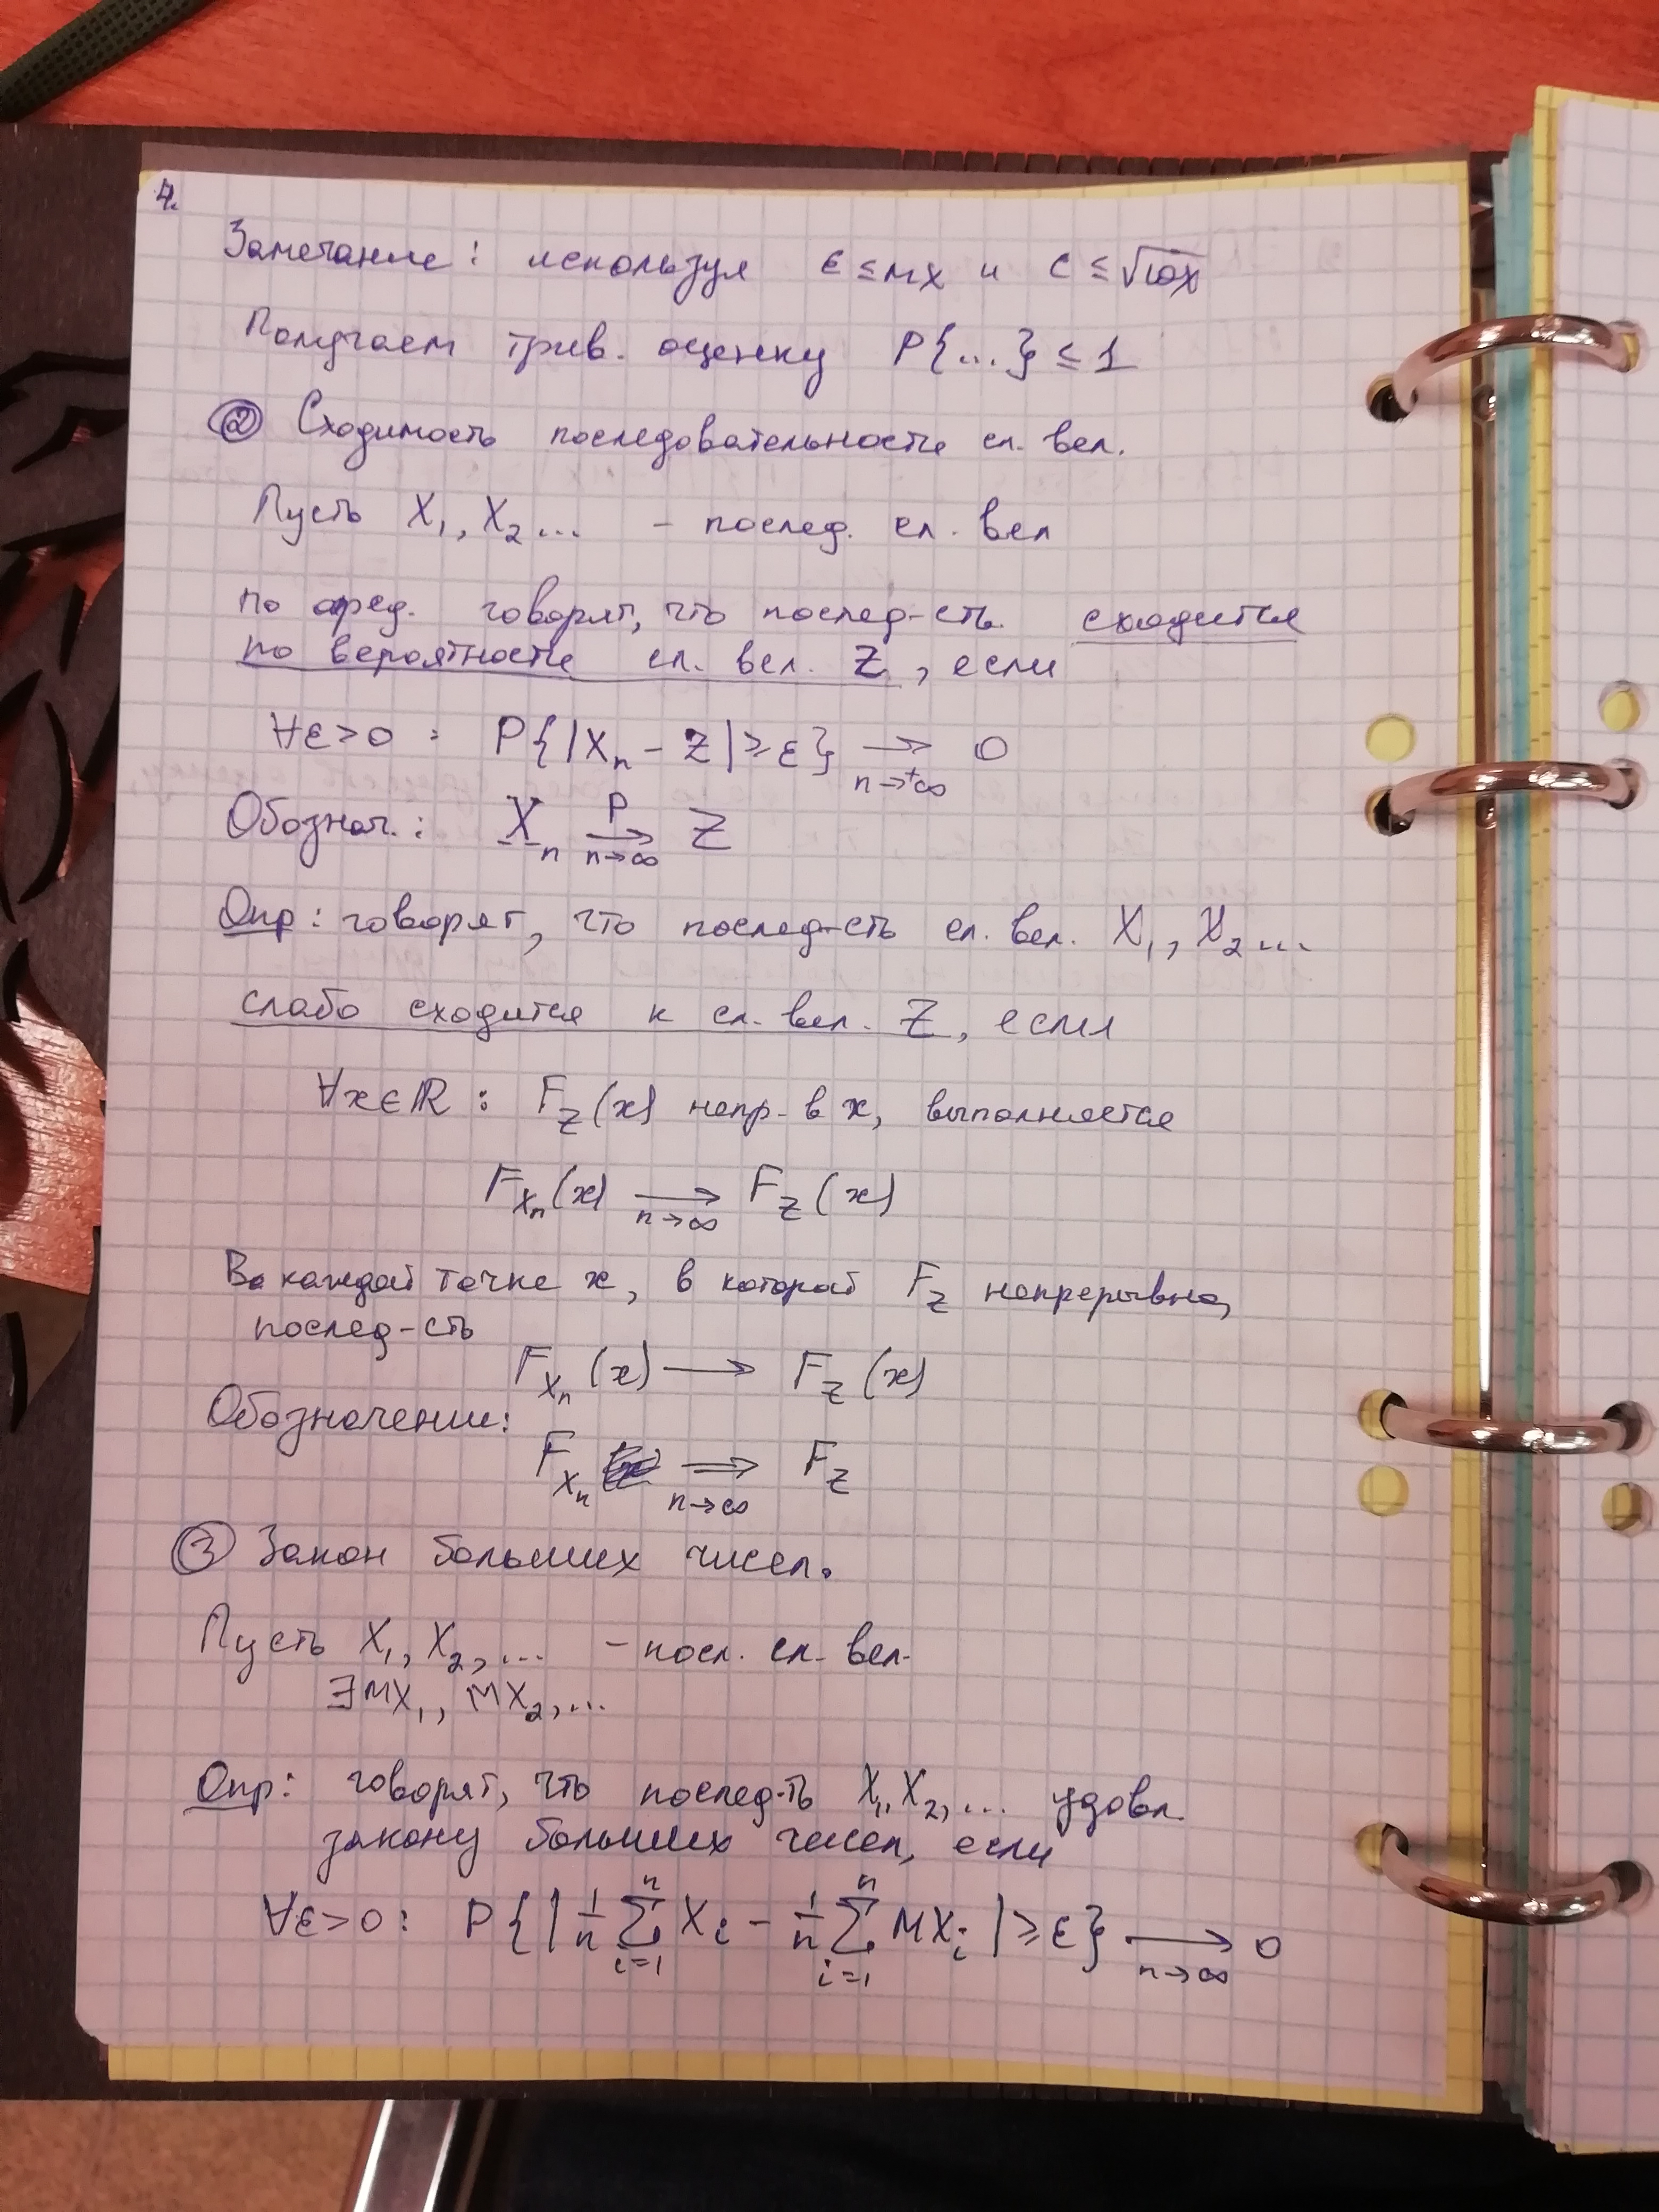 4.
Замечание: используя ε ≤ MX и ε ≤ √DX
Получаем трив. оценку P{...} ≤ 1
② Сходимость последовательности сл. вел.
Пусть X₁, X₂ ... – послед. сл. вел
по опред. говорят, что послед-сть сходится
по вероятности сл. вел. Z, если
∀ε>0 : P{|Xₙ – Z| ≥ ε} ⟶ 0 n→+∞
Обознач.: Xₙ ⟶ Z P n→∞
Опр: говорят, что послед-сть сл. вел. X₁, X₂ ...
слабо сходится к сл. вел. Z, если
∀x∈ℝ : F_Z(x) непр. в x, выполняется
F_Xₙ(x) ⟶ F_Z(x) n→∞
В каждой точке x, в которой F_Z непрерывна,
послед-сть
F_Xₙ(x) ⟶ F_Z(x)
Обозначение:
F_Xₙ ⟹ F_Z n→∞
③ Закон больших чисел.
Пусть X₁, X₂, ... – посл. сл. вел.
∃MX₁, MX₂, ...
Опр: говорят, что послед-ть X₁, X₂, ... удовл.
закону больших чисел, если
∀ε>0: P{|1/n ∑ᵢ₌₁ⁿ Xᵢ – 1/n ∑ᵢ₌₁ⁿ MXᵢ| ≥ ε} ⟶ 0 n→∞